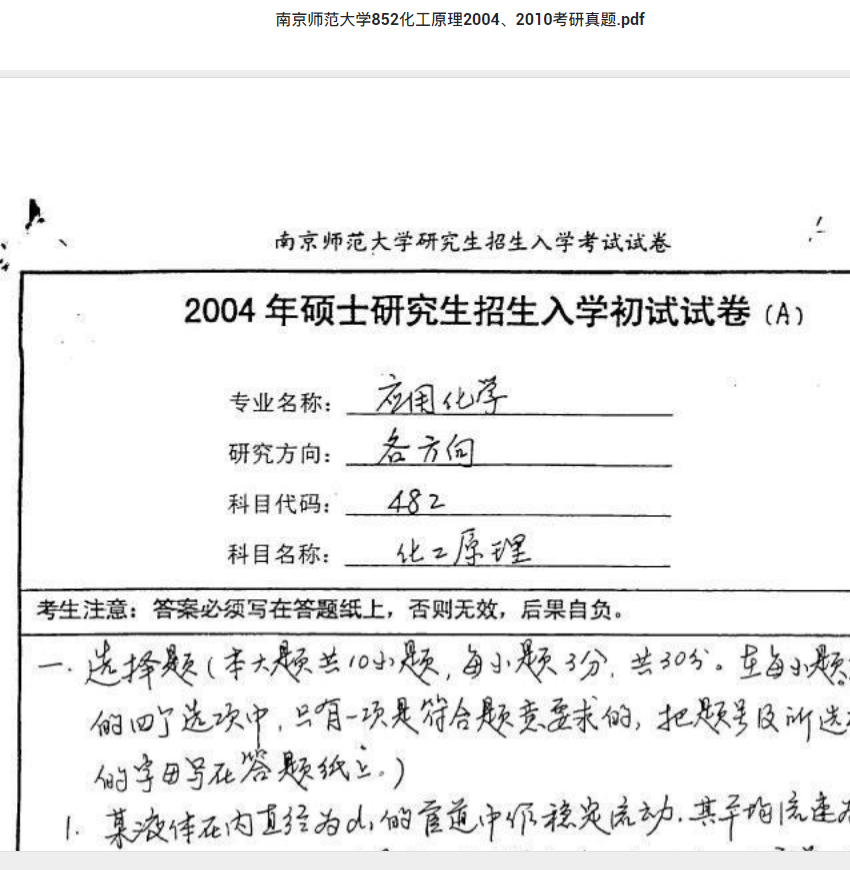 南京师范大学852化工原理2004、2010考研真题.pdf
南京师范大学研究生招生入学考试试卷
2004 年硕士研究生招生入学初试试卷 (A)
专业名称： 应用化学
研究方向： 各方向
科目代码： 482
科目名称： 化工原理
考生注意：答案必须写在答题纸上，否则无效，后果自负。
一. 选择题(本大题共10小题, 每小题3分, 共30分。在每小题
的四个选项中, 只有一项是符合题意要求的, 把题号及所选
的字母写在答题纸上。)
1. 某液体在内直径为d₁的管道中作稳定流动, 其平均流速